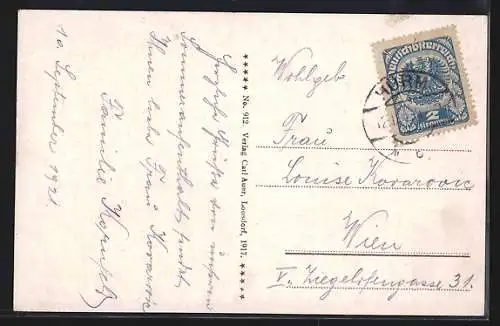 10. September 1921.
Herzliche Grüße von unserem
Sommeraufenthalt sendet
Ihnen liebe Frau Kovarovic
Familie
***** No. 912. Verlag Carl Auer, Loosdorf, 1917. *****
Deutschösterreich
2
Wohlgeb
Frau
Louise Kovarovic
Wien
V., Ziegelofengasse 31.